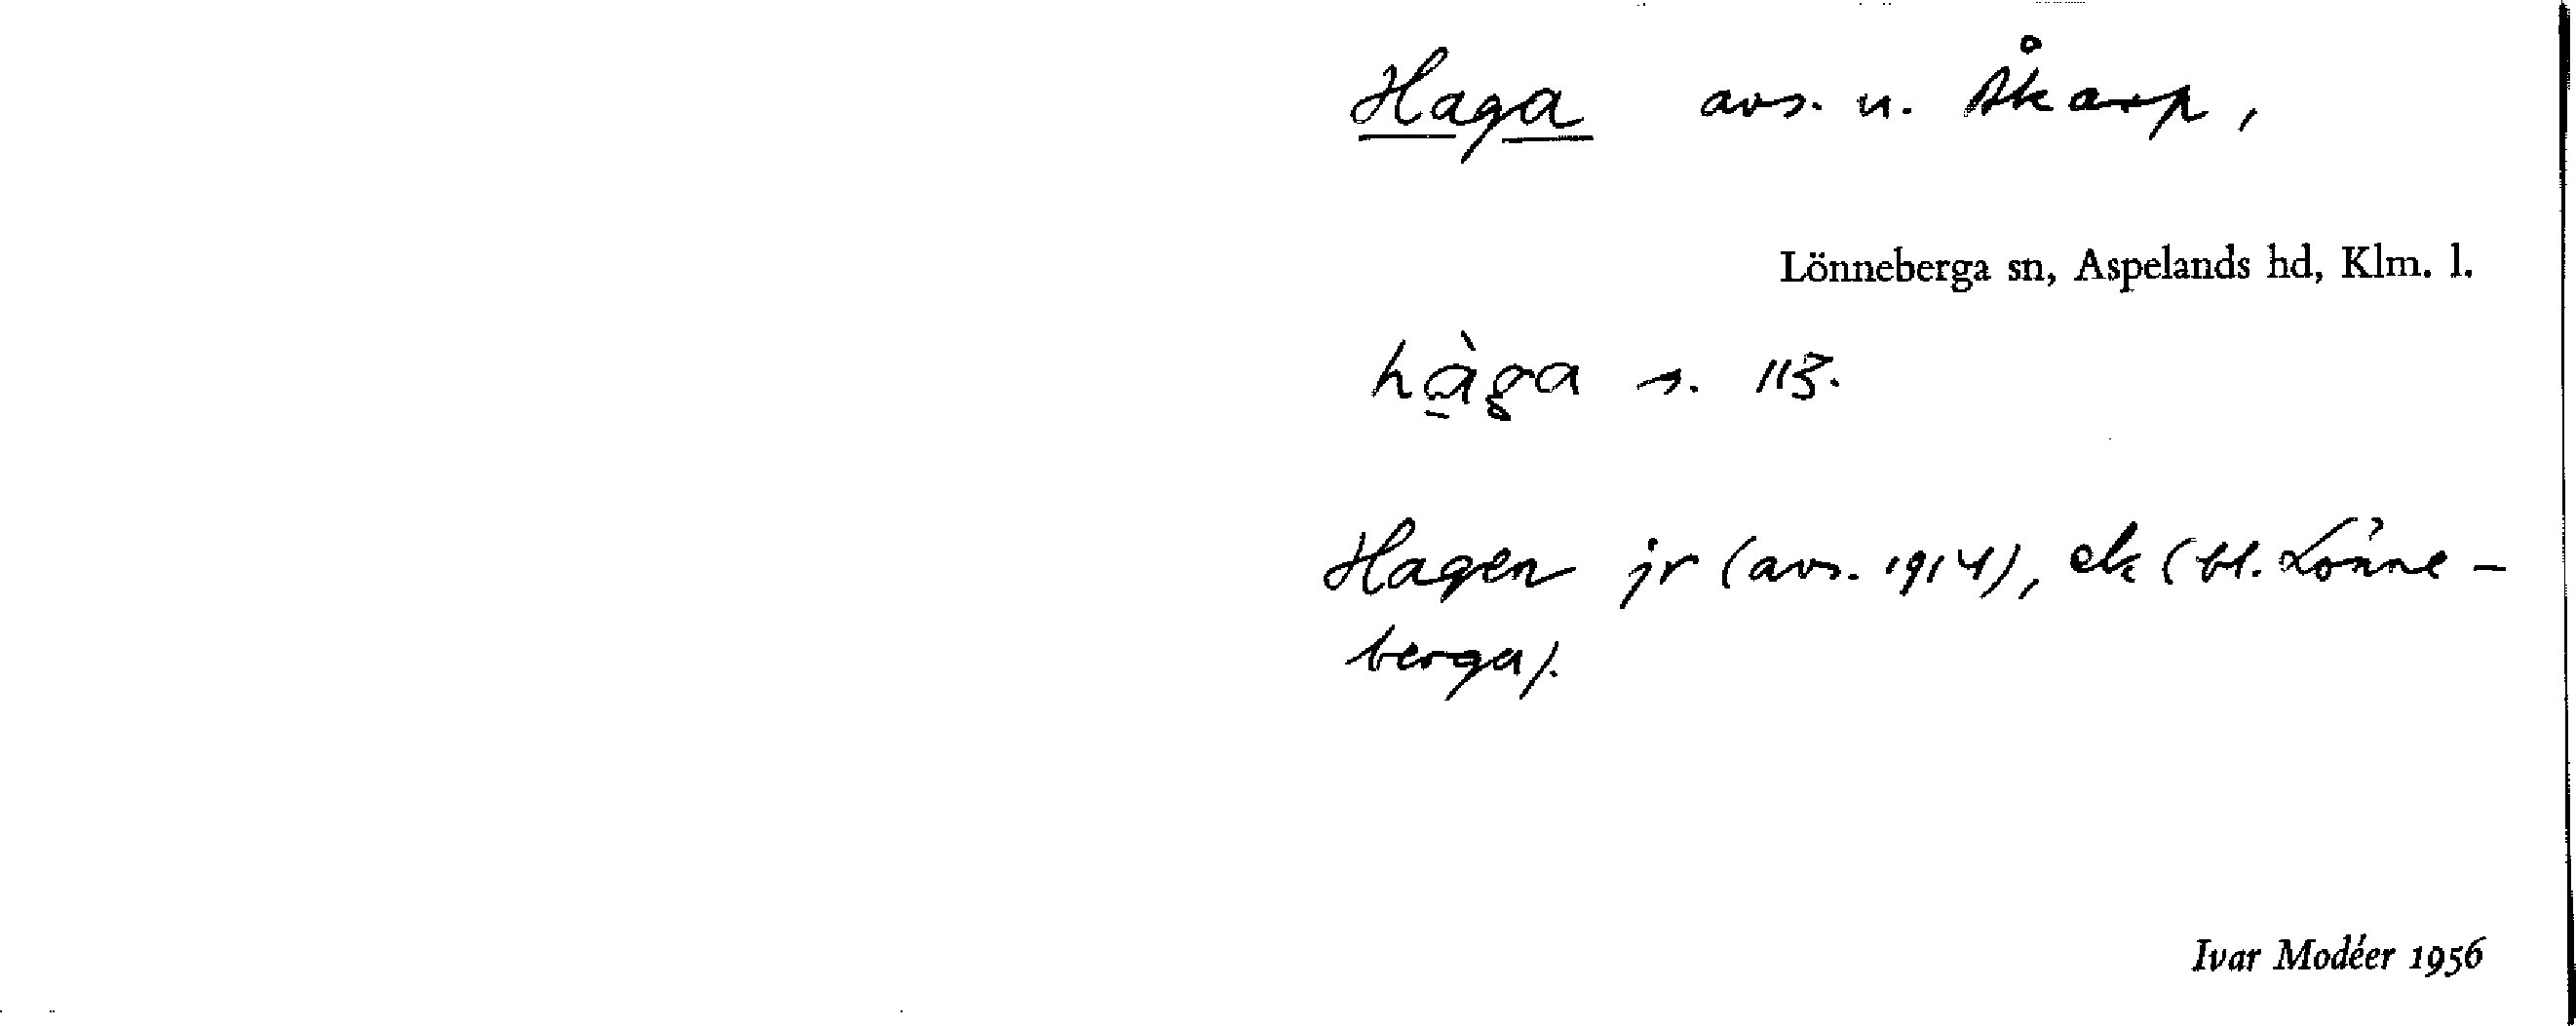 Haga avs. u. Åkarp,
Lönneberga sn, Aspelands hd, Klm. l.
hàga s. 113.
Hagen jr (avs. 1914), ek (bl. Lönne-
berga).
Ivar Modéer 1956